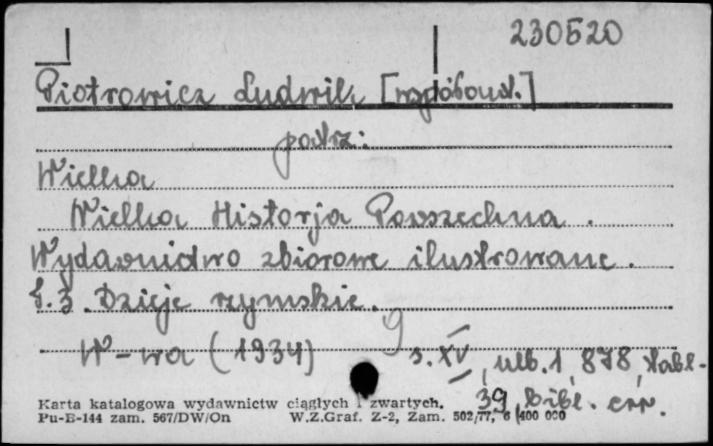 230520
Piotrowicz Ludwik [współoprac.]
patrz:
Wielka
Wielka Historja Powszechna.
Wydawnictwo zbiorowe ilustrowane.
T. 3. Dzieje rzymskie.
W-wa (1934)
s. XV, nlb. 1, 878, tabl.
39, bibl. err.
Karta katalogowa wydawnictw ciągłych i zwartych.
Pu-B-144 zam. 567/DW/On W.Z.Graf. Z-2, Zam. 502/77, 6 400 000